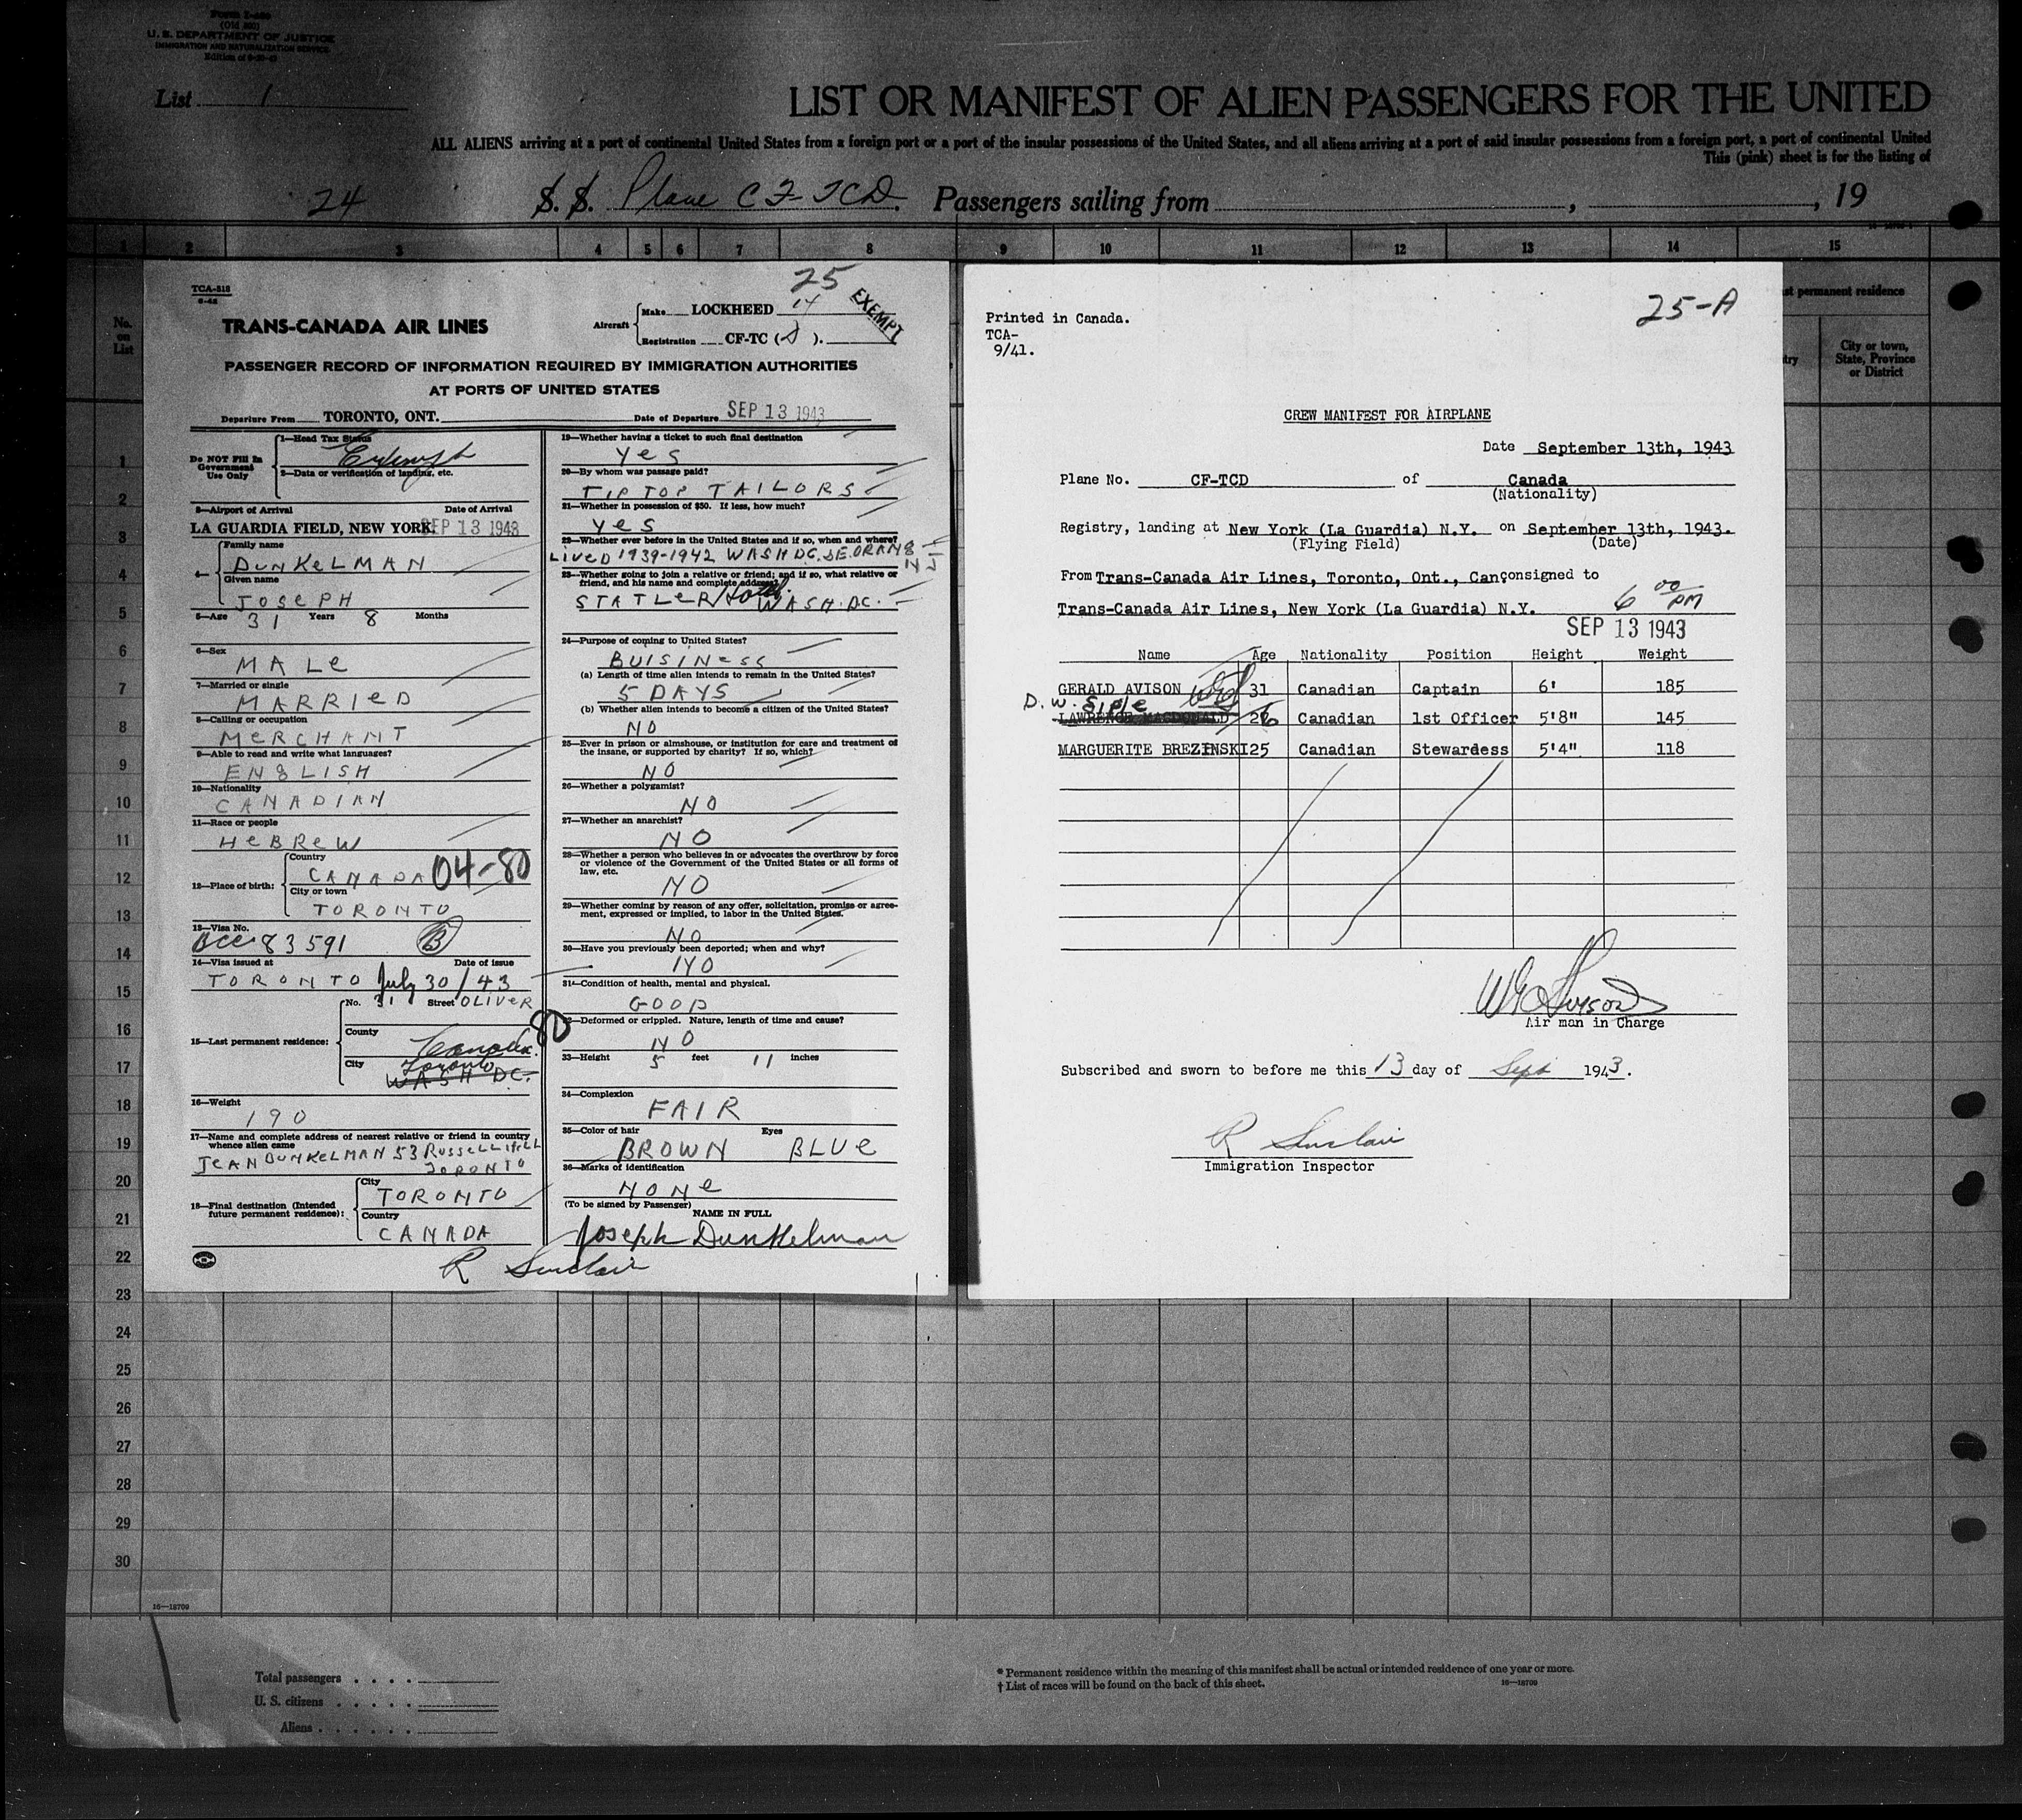 Form I-
(Old )
U. S. DEPARTMENT OF JUSTICE
IMMIGRATION AND NATURALIZATION SERVICE
Edition of
List 1
LIST OR MANIFEST OF ALIEN PASSENGERS FOR THE UNITED
ALL ALIENS arriving at a port of continental United States from a foreign port or a port of the insular possessions of the United States, and all aliens arriving at a port of said insular possessions from a foreign port, a port of continental United
This (pink) sheet is for the listing of
24 S. S. Plane CF-TCD. Passengers sailing from , , 19
1 2 3 4 5 6 7 8 9 10 11 12 13 14 15
No. on List
st permanent residence
ry
City or town, State, Province or District
TCA-518
25
EXEMPT
TRANS-CANADA AIR LINES
Aircraft
Make LOCKHEED 14
Registration CF-TC (D).
PASSENGER RECORD OF INFORMATION REQUIRED BY IMMIGRATION AUTHORITIES
AT PORTS OF UNITED STATES
Departure From TORONTO, ONT. Date of Departure SEP 13 1943
Do NOT Fill In Government Use Only
1—Head Tax Status
Exempt
2—Data or verification of landing, etc.
3—Airport of Arrival Date of Arrival
LA GUARDIA FIELD, NEW YORK SEP 13 1943
4—
Family name
DUNKELMAN
Given name
JOSEPH
5—Age 31 Years 8 Months
6—Sex
MALE
7—Married or single
MARRIED
8—Calling or occupation
MERCHANT
9—Able to read and write what languages?
ENGLISH
10—Nationality
CANADIAN
11—Race or people
HEBREW
12—Place of birth:
Country
CANADA 04-80
City or town
TORONTO
13—Visa No.
BCC 83591 B
14—Visa issued at Date of issue
TORONTO July 30/43
15—Last permanent residence:
No. 31 Street OLIVER
County
Canada. 80
City
Toronto
WASH DC.
16—Weight
190
17—Name and complete address of nearest relative or friend in country whence alien came
JEAN DUNKELMAN 53 RUSSELL HILL
TORONTO
18—Final destination (Intended future permanent residence):
City
TORONTO
Country
CANADA
19—Whether having a ticket to such final destination
Yes
20—By whom was passage paid?
TIP TOP TAILORS
21—Whether in possession of $50. If less, how much?
Yes
22—Whether ever before in the United States and if so, when and where?
LIVED 1939-1942 WASH DC. SE. ORANG
NJ
23—Whether going to join a relative or friend; and if so, what relative or friend, and his name and complete address?
STATLER Hotel WASH. DC.
24—Purpose of coming to United States?
BUISINESS
(a) Length of time alien intends to remain in the United States?
5 DAYS
(b) Whether alien intends to become a citizen of the United States?
NO
25—Ever in prison or almshouse, or institution for care and treatment of the insane, or supported by charity? If so, which?
NO
26—Whether a polygamist?
NO
27—Whether an anarchist?
NO
28—Whether a person who believes in or advocates the overthrow by force or violence of the Government of the United States or all forms of law, etc.
NO
29—Whether coming by reason of any offer, solicitation, promise or agreement, expressed or implied, to labor in the United States.
NO
30—Have you previously been deported; when and why?
NO
31—Condition of health, mental and physical.
GOOD
32—Deformed or crippled. Nature, length of time and cause?
NO
33—Height 5 feet 11 inches
34—Complexion
FAIR
35—Color of hair Eyes
BROWN BLUE
36—Marks of identification
NONE
(To be signed by Passenger)
NAME IN FULL
Joseph Dunkelman
R Sinclair
25-A
Printed in Canada.
TCA-
9/41.
CREW MANIFEST FOR AIRPLANE
Date September 13th, 1943
Plane No. CF-TCD of Canada
(Nationality)
Registry, landing at New York (La Guardia) N.Y. on September 13th, 1943.
(Flying Field) (Date)
From Trans-Canada Air Lines, Toronto, Ont., Can consigned to
Trans-Canada Air Lines, New York (La Guardia) N.Y. 6 00 PM
SEP 13 1943
Name Age Nationality Position Height Weight
GERALD AVISON 31 Canadian Captain 6' 185
D. W. Siple
LAWRENCE MACDONALD 26 Canadian 1st Officer 5'8" 145
MARGUERITE BREZINSKI 25 Canadian Stewardess 5'4" 118
Air man in Charge
Subscribed and sworn to before me this 13 day of Sept 1943.
R Sinclair
Immigration Inspector
1
2
3
4
5
6
7
8
9
10
11
12
13
14
15
16
17
18
19
20
21
22
23
24
25
26
27
28
29
30
16—18709
Total passengers
U. S. citizens
Aliens
* Permanent residence within the meaning of this manifest shall be actual or intended residence of one year or more.
† List of races will be found on the back of this sheet.
16—18709